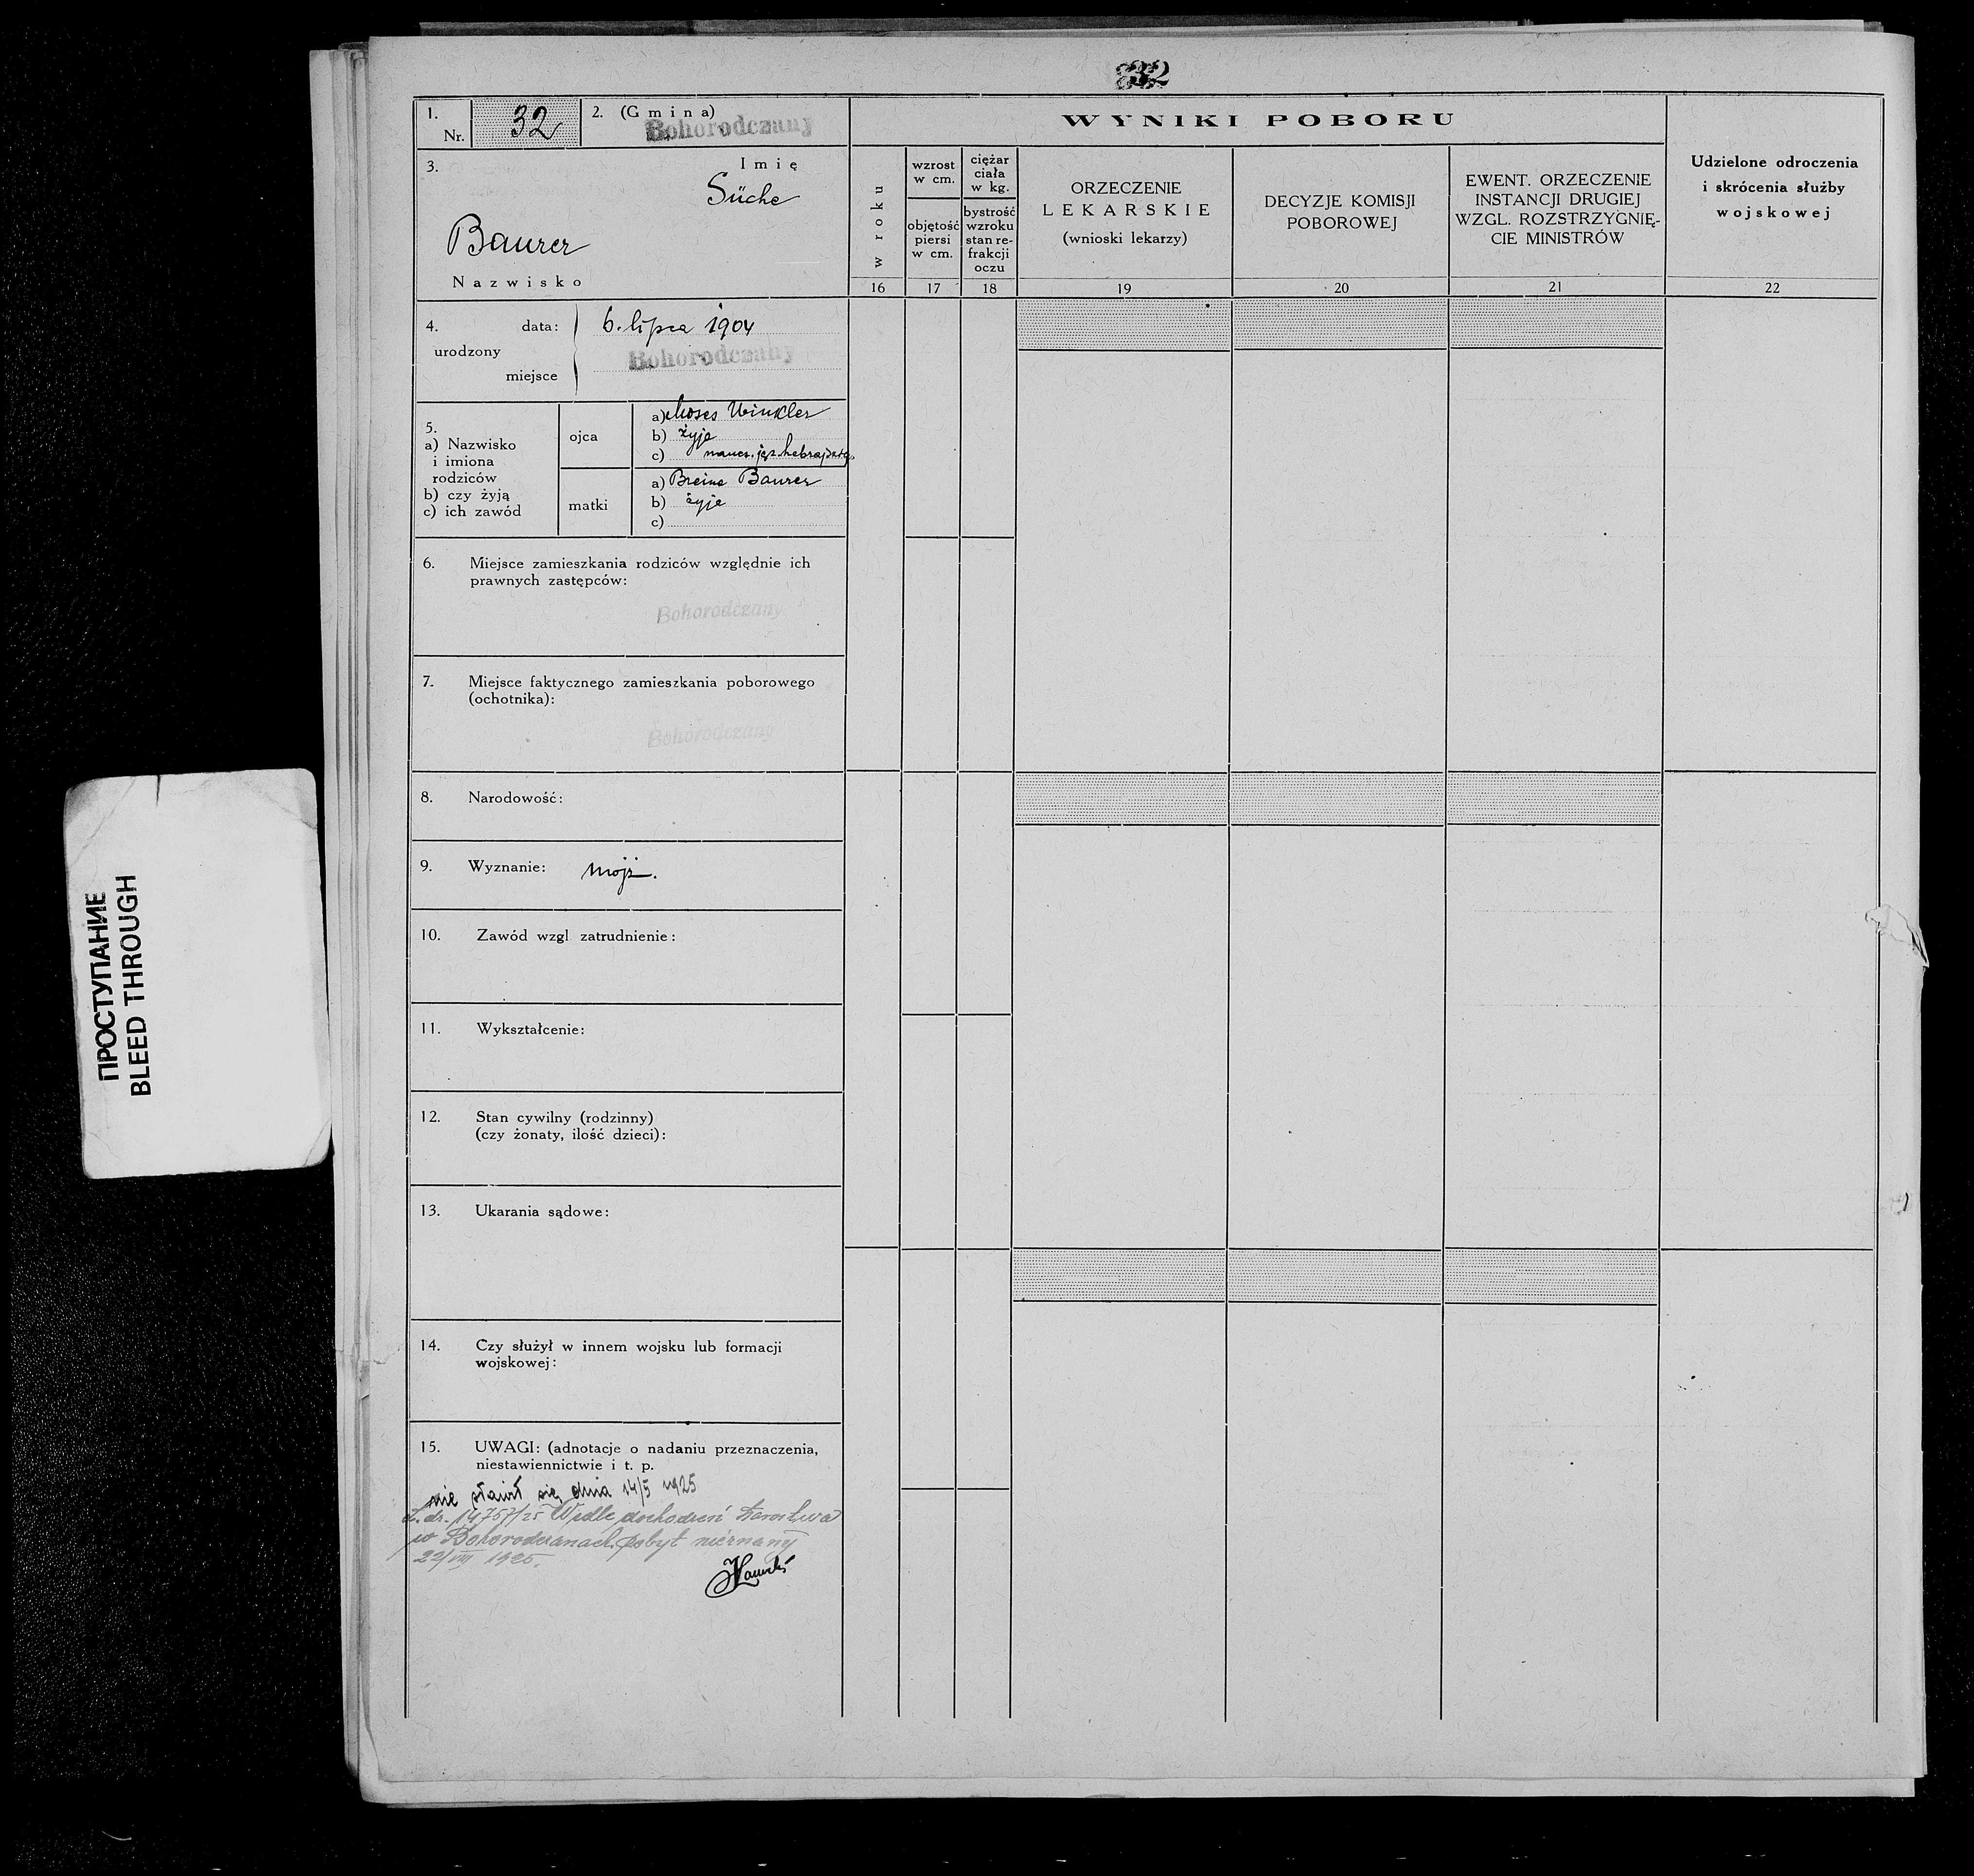 32
1.
Nr. 32
2. (Gmina)
Bohorodczany
3.
Imię
Süche
Baurer
Nazwisko
4.
urodzony
data: 6. lipca 1904
miejsce Bohorodczany
5.
a) Nazwisko
i imiona
rodziców
b) czy żyją
c) ich zawód
ojca
a) Moses Winkler
b) żyje
c) naucz. jęz. hebrajskg.
matki
a) Breine Baurer
b) żyje
c)
6. Miejsce zamieszkania rodziców względnie ich
prawnych zastępców:
Bohorodczany
7. Miejsce faktycznego zamieszkania poborowego
(ochotnika):
Bohorodczany
8. Narodowość:
9. Wyznanie: mojż.
10. Zawód wzgl. zatrudnienie:
11. Wykształcenie:
12. Stan cywilny (rodzinny)
(czy żonaty, ilość dzieci):
13. Ukarania sądowe:
14. Czy służył w innem wojsku lub formacji
wojskowej:
15. UWAGI: (adnotacje o nadaniu przeznaczenia,
niestawiennictwie i t. p.
nie stawił się dnia 14/5 1925
L. dz. 14757/25 Wedle dochodzeń Starostwa
w Bohorodczanach pobyt nieznany
22/VIII 1925.
WYNIKI POBORU
w roku
16
wzrost
w cm.
objętość
piersi
w cm.
17
ciężar
ciała
w kg.
bystrość
wzroku
stan re-
frakcji
oczu
18
ORZECZENIE
LEKARSKIE
(wnioski lekarzy)
19
DECYZJE KOMISJI
POBOROWEJ
20
EWENT. ORZECZENIE
INSTANCJI DRUGIEJ
WZGL. ROZSTRZYGNIĘ-
CIE MINISTRÓW
21
Udzielone odroczenia
i skrócenia służby
wojskowej
22
ПРОСТУПАНИЕ
BLEED THROUGH